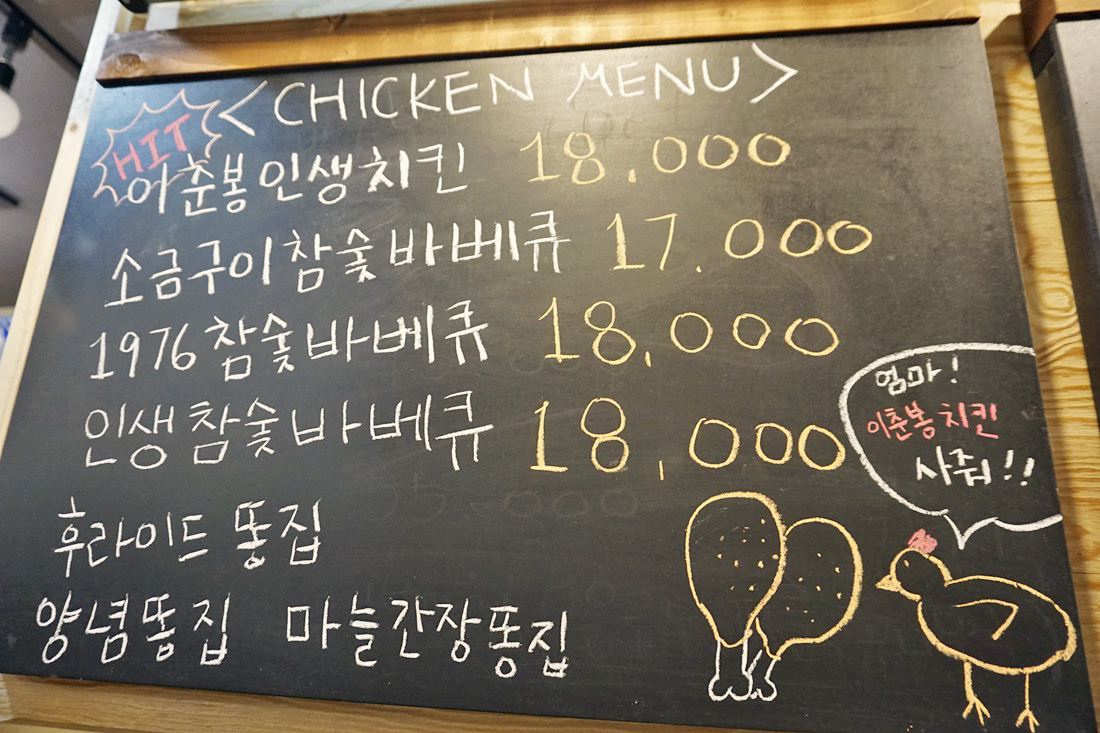 <CHICKEN MENU>
HIT
이춘봉인생치킨 18.000
소금구이참숯바베큐 17.000
1976참숯바베큐 18,000
인생참숯바베큐 18,000
후라이드 똥집
양념똥집 마늘간장똥집
엄마!
이춘봉치킨
사줘!!